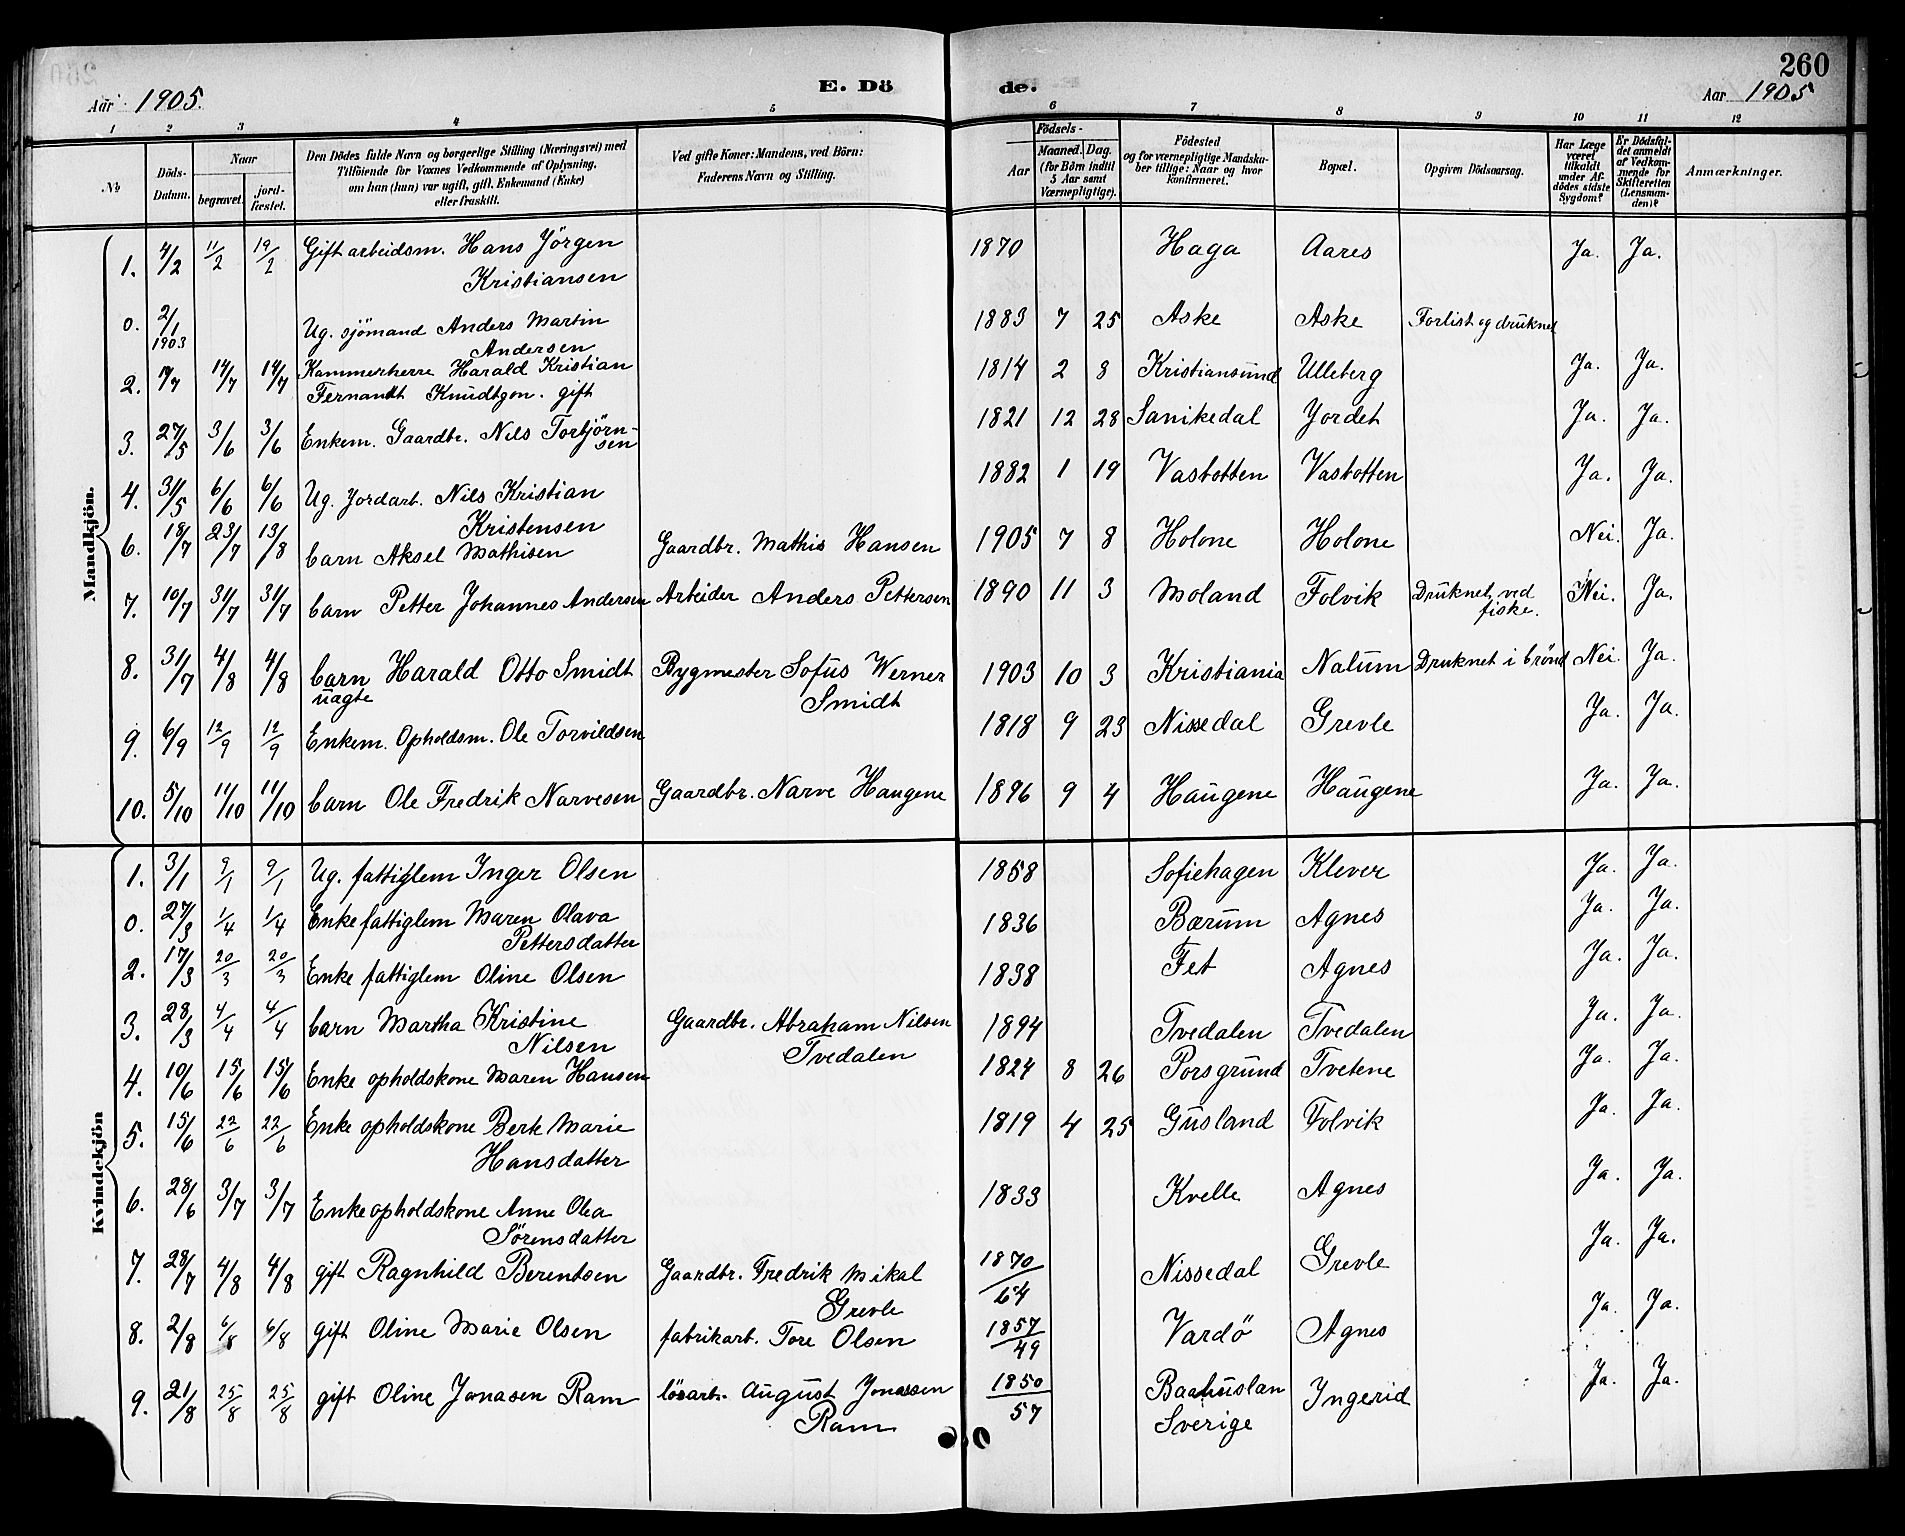 260
Aar 1905. E. Dö de. Aar 1905
1 2 3 4 5 6 7 8 9 10 11 12
No
Döds-Datum.
Naar
begravet.
jord-fæstet.
Den Dödes fulde Navn og borgerlige Stilling (Næringsvei) med
Tilföiende for Voxnes Vedkommende af Oplysning,
om han (hun) var ugift, gift, Enkemand (Enke)
eller fraskilt.
Ved gifte Koner: Mandens, ved Börn:
Faderens Navn og Stilling.
Födsels-
Aar
Maaned. Dag.
(for Börn indtil
5 Aar samt
Værnepligtige).
Födested
og for værnepligtige Mandska-
ber tillige: Naar og hvor
konfirmeret.
Bopæl.
Opgiven Dödsaarsag.
Har Læge
været
tilkaldt
under Af-
dödes sidste
Sygdom?
Er Dödsfal-
det anmeldt
af Vedkom-
mende for
Skifteretten
(Lensman-
den)?
Anmærkninger.
Mandkjön.
1. 4/2 11/2 19/2 Gift arbeidsm. Hans Jörgen 1870 Haga Aares Ja. Ja.
Kristiansen
0. 2/1 1903 Ug. sjömand Anders Martin 1883 7 25 Aske Aske Forlist og druknet
Andersen
2. 14/7 14/7 Kammerherre Harald Kristian 1814 2 8 Kristiansund Ulleberg Ja. Ja.
Fernandt Knudtzon. gift
3. 27/5 3/6 3/6 Enkem. Gaardbr. Nils Torbjörn- 1821 12 28 Sanikedal Jordet Ja. Ja.
sen
4. 31/5 6/6 6/6 Ug. Jordarb. Nils Kristian 1882 1 19 Vasbotten Vasbotten Ja. Ja.
Kristensen
6. 18/7 23/7 13/8 barn Aksel Mathisen Gaardbr. Mathis Hansen 1905 7 8 Holone Holone Nei. Ja.
7. 10/7 31/7 31/7 barn Petter Johannes Andersen Arbeider Anders Pettersen 1890 11 3 Moland Folvik Druknet ved Nei. Ja.
fiske.
8. 31/7 4/8 4/8 barn Harald Otto Smidt Bygmester Sofus Werner 1903 10 3 Kristiania Nalum Druknet i brönd Nei. Ja.
uagte Smidt
9. 6/9 12/9 12/9 Enkem. Opholdsm. Ole Torvildsen 1818 9 23 Nissedal Grevle Ja. Ja.
10. 5/10 11/10 11/10 barn Ole Fredrik Narvesen Gaardbr. Narve Haugene 1896 9 4 Haugene Haugene Ja. Ja.
Kvindekjön
1. 3/1 9/1 9/1 Ug. fattiglem Inger Olsen 1858 Sofiehagen Klever Ja. Ja.
0. 27/3 1/4 1/4 Enke fattiglem Maren Olava 1836 Bærum Agnes Ja. Ja.
Pettersdatter
2. 17/3 20/3 20/3 Enke fattiglem Oline Olsen 1838 Fet Agnes Ja. Ja.
3. 28/3 4/4 4/4 barn Martha Kristine Gaardbr. Abraham Nilsen 1894 Tvedalen Tvedalen Ja. Ja.
Nilsen Tvedalen
4. 10/6 15/6 15/6 Enke opholdskone Maren Hansen 1824 8 26 Porsgrund Tvetene Ja. Ja.
5. 15/6 22/6 22/6 Enke opholdskone Berk Marie 1819 4 25 Gusland Folvik Ja. Ja.
Hansdatter
6. 28/6 3/7 3/7 Enke opholdskone Anne Olea 1833 Kvelle Agnes Ja. Ja.
Sörensdatter
7. 28/7 4/8 4/8 gift Ragnhild Berentsen Gaardbr. Fredrik Mikal 1870/64 Nissedal Grevle Ja. Ja.
Grevle
8. 2/8 6/8 6/8 gift Oline Marie Olsen fabrikarb. Tore Olsen 1857/49 Vardö Agnes Ja. Ja.
9. 21/8 25/8 25/8 gift Oline Jonasen Ram lösarb. August Jonassen 1850/57 Baahuslan Ingerid Ja. Ja.
Ram Sverige